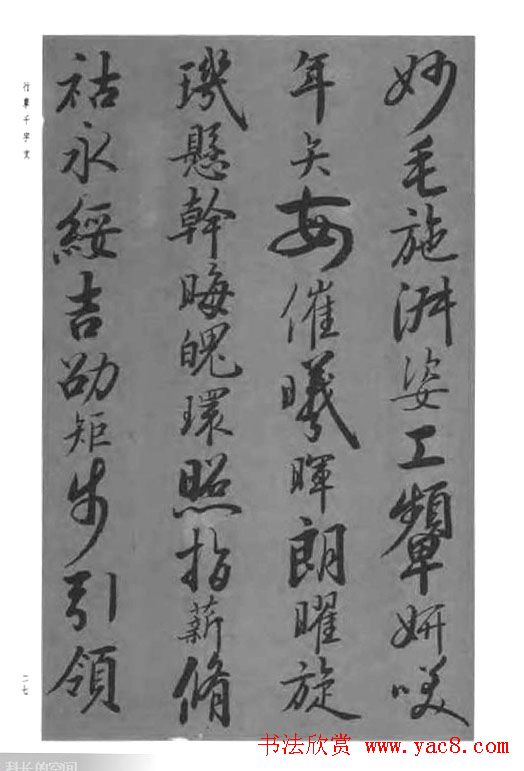 妙毛施淑姿工顰妍咲
年矢每催曦暉朗曜旋
璣懸幹晦魄環照指薪脩
祜永綏吉劭矩步引領
行草千字文
二七
书法欣赏 www.yac8.com
科长的空间